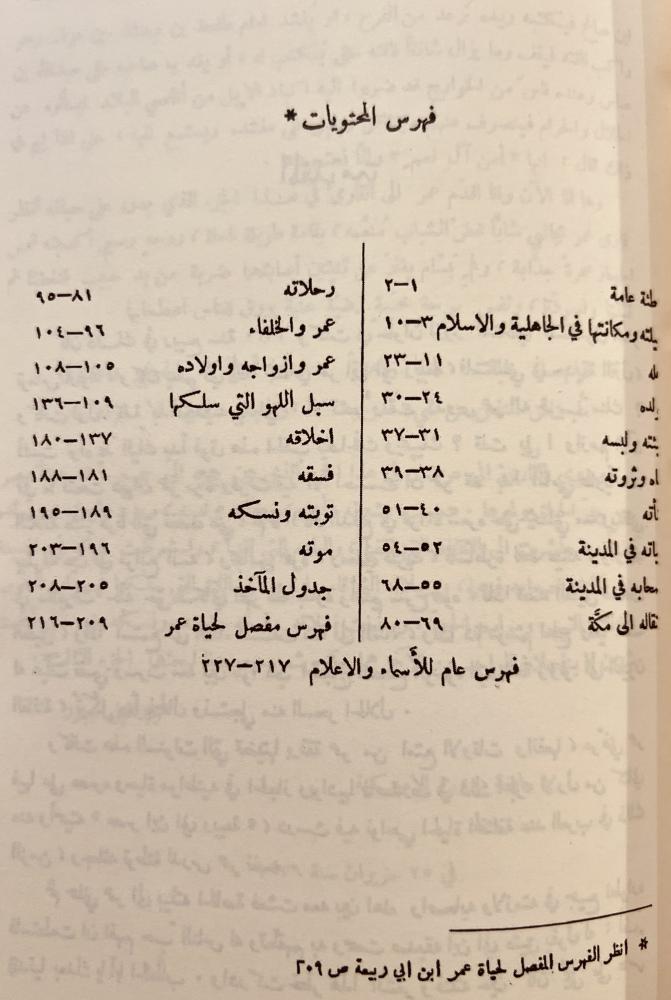 فهرس المحتويات *
طئة عامة ١–٢
يلته ومكانتها في الجاهلية والاسلام ٣–١٠
له ١١–٢٣
لده ٢٤–٣٠
ئته ولبسه ٣١–٣٧
اه وثروته ٣٨–٣٩
أته ٤٠–٥١
اته في المدينة ٥٢–٥٤
حابه في المدينة ٥٥–٦٨
تقاله الى مكَّة ٦٩–٨٠
رحلاته ٨١–٩٥
عمر والخلفاء ٩٦–١٠٤
عمر وازواجه واولاده ١٠٥–١٠٨
سبل اللهو التي سلكها ١٠٩–١٣٦
اخلاقه ١٣٧–١٨٠
فسقه ١٨١–١٨٨
توبته ونسكه ١٨٩–١٩٥
موته ١٩٦–٢٠٣
جدول المآخذ ٢٠٥–٢٠٨
فهرس مفصل لحياة عمر ٢٠٩–٢١٦
فهرس عام للأَسماء والاعلام ٢١٧–٢٢٧
* انظر الفهرس المفصل لحياة عمر ابن ابي ربيعة ص ٢٠٩